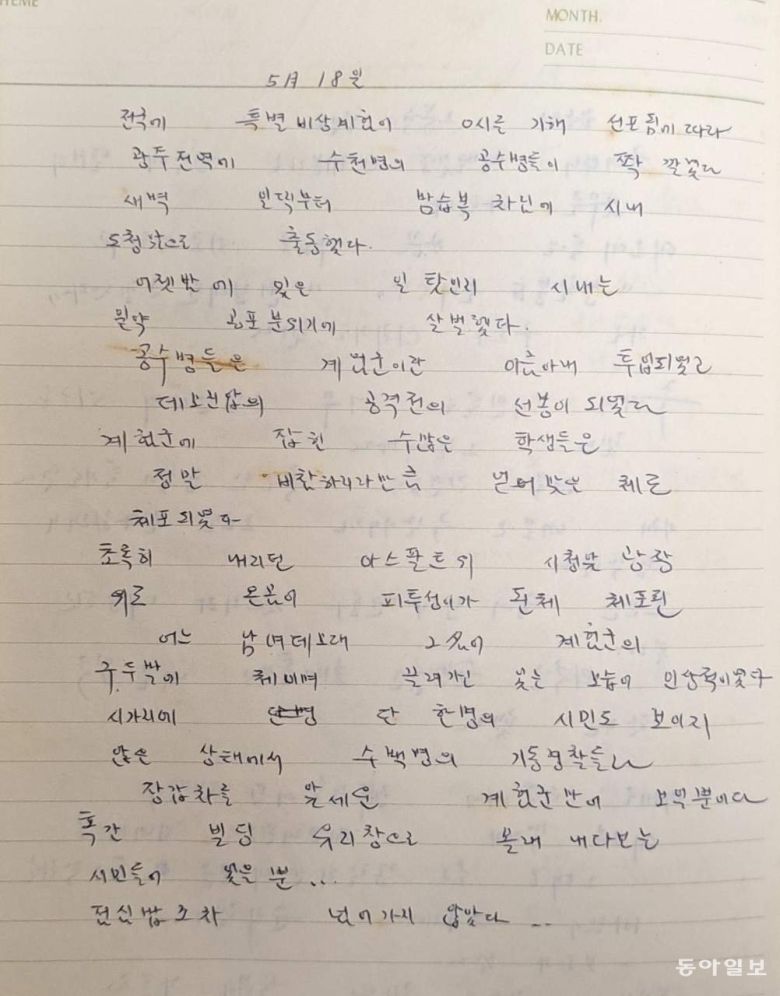 HEME
MONTH.
DATE
5月 18일
전국에 특별비상계엄이 0시를 기해 선포됨에 따라
광주전역에 수천명의 공수병들이 쫙 깔렸고
새벽 부터 시내
도청앞으로 출동했다.
어젯밤에 있은 일 탓인지 시내는
월약 공포 분위기에 살벌했다.
공수병들은 계엄군이란 이름아래 투입되였고
데모진압의 공격전의 선봉이 되였고
계엄군에 잡힌 수많은 학생들은
정말 비참하리라만큼 얻어맞은 체로
체포되였다
초록히 내리던 아스팔트의 시청앞 광장
위로 온몸이 피투성이가 된체 체포된
어느 남녀데모대 그 계엄군의
구두발에 체이며 끌려가던 모습이 인상적이였다
시가지에 단 한명의 시민도 보이지
않은 상태에서 수백명의 기동경찰들과
장갑차를 앞세운 계엄군만이 보일뿐이다
혹간 빌딩 유리창으로 몰내 내다보는
시민들이 있을 뿐...
점심밥조차 넘어가지 않았다 ...
동아일보